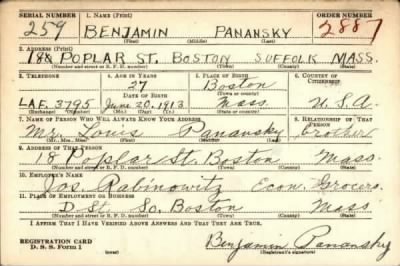 SERIAL NUMBER 1. NAME (Print) ORDER NUMBER
259 BENJAMIN PANANSKY 2887
(First) (Middle) (Last)
2. ADDRESS (Print)
18 POPLAR ST. BOSTON SUFFOLK MASS.
(Number and street or R. F. D. number) (Town) (County) (State)
3. TELEPHONE 4. AGE IN YEARS 5. PLACE OF BIRTH 6. COUNTRY OF CITIZENSHIP
27 Boston
DATE OF BIRTH (Town or county)
LAF. 3795 June 20, 1913 Mass. U.S.A.
(Exchange) (Number) (Mo.) (Day) (Yr.) (State or country)
7. NAME OF PERSON WHO WILL ALWAYS KNOW YOUR ADDRESS 8. RELATIONSHIP OF THAT PERSON
Mr. Louis Panansky brother
(Mr., Mrs., Miss) (First) (Middle) (Last)
9. ADDRESS OF THAT PERSON
18 Poplar St. Boston Mass.
(Number and street or R. F. D. number) (Town) (County) (State)
10. EMPLOYER'S NAME
Jos. Rabinowitz Econ. Grocers
11. PLACE OF EMPLOYMENT OR BUSINESS
D St. So. Boston Mass
(Number and street or R. F. D. number) (Town) (County) (State)
I AFFIRM THAT I HAVE VERIFIED ABOVE ANSWERS AND THAT THEY ARE TRUE.
REGISTRATION CARD
D. S. S. FORM 1 Benjamin Panansky
(Registrant's signature)